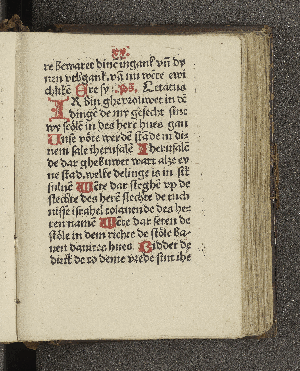 xx.
re beware dinē ingank vñ dy
nen vthgank. vñ nu wēte ewi
chlikē Ere sy. ps. Letatus
Ik bin ghevrouwet in dē
dingē de my gesecht sint
wy scolē in des herē hues gan
Unse vöte werdē stāde in dy
nem sale iherusalē Iherusalē
de dar ghebuwet wart alze ey
ne stad. welke delinge is in sik
suluē Wēte dar steghē vp de
slechte des herē slechte de tuch
nisse israhel to lauende des he
ren namē Wēte dar seten de
stöle in dem richte de stöle ba
uen dauites hues. Biddet de
dink de to deme vrede sint ihe